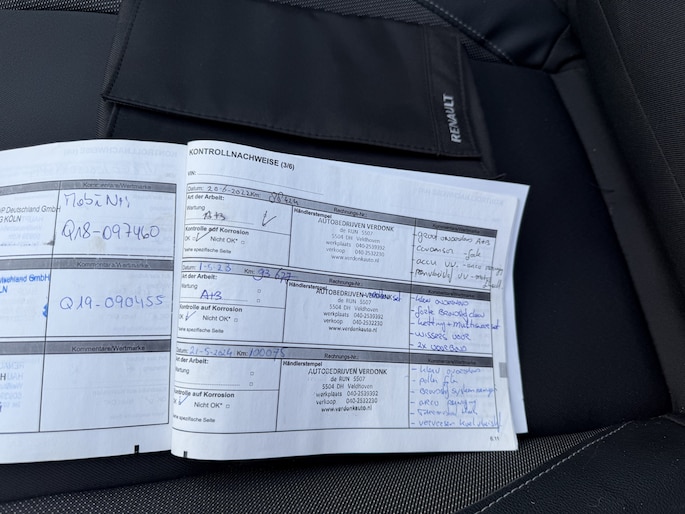 RENAULT
KONTROLLNACHWEISE (3/6)
VIN:
Kommentare/Wertmarke
P Deutschland GmbH
KÖLN
Mobi
Q18-097460
Kommentare/Wertmarke
eutschland GmbH
LN
Q19-090455
Kommentare/Wertmarke
Datum: 20-6-2022 Km:
Art der Arbeit:
Wartung
A+B
Kontrolle auf Korrosion
OK Nicht OK*
siehe spezifische Seite
Händlerstempel
Rechnungs-Nr.:
AUTOBEDRIJVEN VERDONK
de RUN 5507
5504 DH Veldhoven
werkplaats 040-2539302
verkoop 040-2532230
www.verdonkauto.nl
Kommentare/Wertmarke
- groot onderhoud A+B
Datum: 1-5-23 Km: 93.627
Art der Arbeit:
Wartung
A+B
Kontrolle auf Korrosion
OK Nicht OK*
siehe spezifische Seite
Händlerstempel
Rechnungs-Nr.:
AUTOBEDRIJVEN VERDONK
de RUN 5507
5504 DH Veldhoven
werkplaats 040-2539302
verkoop 040-2532230
www.verdonkauto.nl
Kommentare/Wertmarke
- klein onderhoud
- ketting + multiriemset
- wissers voor
- 2x voorband
Datum: 21-5-2024 Km: 100075
Art der Arbeit:
Wartung
Kontrolle auf Korrosion
Nicht OK*
spezifische Seite
Händlerstempel
Rechnungs-Nr.:
AUTOBEDRIJVEN VERDONK
de RUN 5507
5504 DH Veldhoven
werkplaats 040-2539302
verkoop 040-2532230
www.verdonkauto.nl
Kommentare/Wertmarke
- klein onderhoud
- pollen filter
- airco